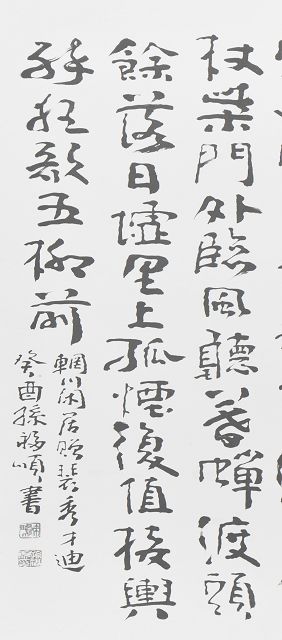 杖柴門外臨風聽暮蟬渡頭
餘落日墟里上孤煙復值接輿
醉狂歌五柳前
輞川閑居贈裴秀才迪
癸酉孫書